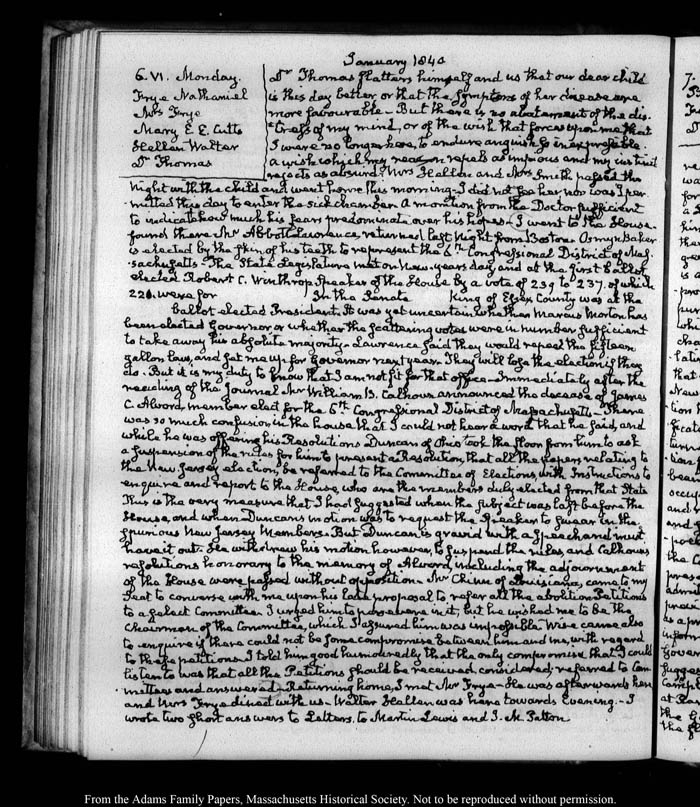 January 1840
6. VI. Monday.
Frye Nathaniel
Mrs Frye
Mary E. E. Cutts
Hellen Walter
Dr Thomas
Dr Thomas flatters himself and us that our dear child
is this day better or that the symptoms of her disease are
more favourable – But there is no abatement of the dis-
tress of my mind, or of the wish that forces upon me that
I were no longer here, to endure anguish so inexpressible.
a wish which my reason repels as impious and my instinct
rejects as absurd. Mrs Hellen and Mrs Smith passed the
Night with the child and went home this morning – I did not see her nor was I per-
mitted this day to enter the sick chamber. A monition from the Doctor sufficient
to indicate how much his fears predominate over his hopes – I went to the House.
found there Mr Abbott Lawrence, returned last Night from Boston. Osmyn Baker
is elected by the skin of his teeth to represent the 6th Congressional District of Mas-
sachusetts. The State Legislature met on New-years day, and at the first ballot
elected Robert C. Winthrop Speaker of the House by a vote of 239 to 237. of which
220. were for In the Senate King of Essex County was at the
ballot elected President. It was yet uncertain whether Marcus Morton has
been elected Governor or whether the scattering votes were in number sufficient
to take away his absolute majority – Lawrence said they would repeal the fifteen
gallon law, and set me up for Governor next year. They will lose the election if they
do. But it is my duty to know that I am not fit for that office – Immediately after the
reading of the Journal Mr William B. Calhoun announced the decease of James
C. Alvord, member elect for the 6th Congressional District of Massachusetts – There
was so much confusion in the house that I could not hear a word that he said, and
while he was offering his Resolutions Duncan of Ohio took the floor from him to ask
a suspension of the rules for him to present a Resolution, that all the papers relating to
the New Jersey election, be referred to the Committee of Elections, with Instructions to
enquire and report to the House, who are the members duly elected from that State
This is the very measure that I had suggested when the subject was last before the
House, and when Duncan's motion was to request the Speaker to swear in the
spurious New Jersey Members. But Duncan is gravid with a speech and must
have it out. He withdrew his motion however, to suspend the rules, and Calhoun's
resolutions honorary to the memory of Alvord, including the adjournment
of the House were passed without opposition – Mr Chinn of Louisiana, came to my
Seat to converse with me upon his last proposal to refer all the abolition Petitions
to a select Committee. I urged him to persevere in it, but he wished me to be the
Chairman of the Committee, which I assured him was impossible. Wise came also
to enquire if there could not be some compromise between him and me, with regard
to these petitions. I told him good humouredly, that the only compromise that I could
listen to was that all the Petitions should be received, considered, referred to Com
mittees and answered – Returning home, I met Mr Frye – He was afterwards here
and Mrs Frye dined with us – Walter Hellen was here towards Evening. – I
wrote two short answers to Letters, to Martin Lewis and J. M. Patton
From the Adams Family Papers, Massachusetts Historical Society. Not to be reproduced without permission.